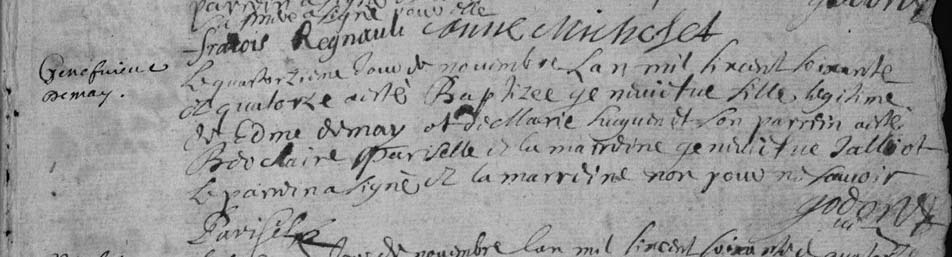 marraine a signé pour elle
francois Regnault Anne Michelet
Genefuieue
Demay.
Le quatorzieme Jour de novembre Lan mil sixcent soixante
et quatorze a esté Baptizee genuiefue fille legitime
de Edme demay et de Marie huguenet son parrein a esté
Pariselle et la marreine genuiefue Jalliot
Le parrein a signé et la marreine non pour ne scauoir
Pariselle
godon
Jour de novembre lan mil sixcent soixante et quatorze